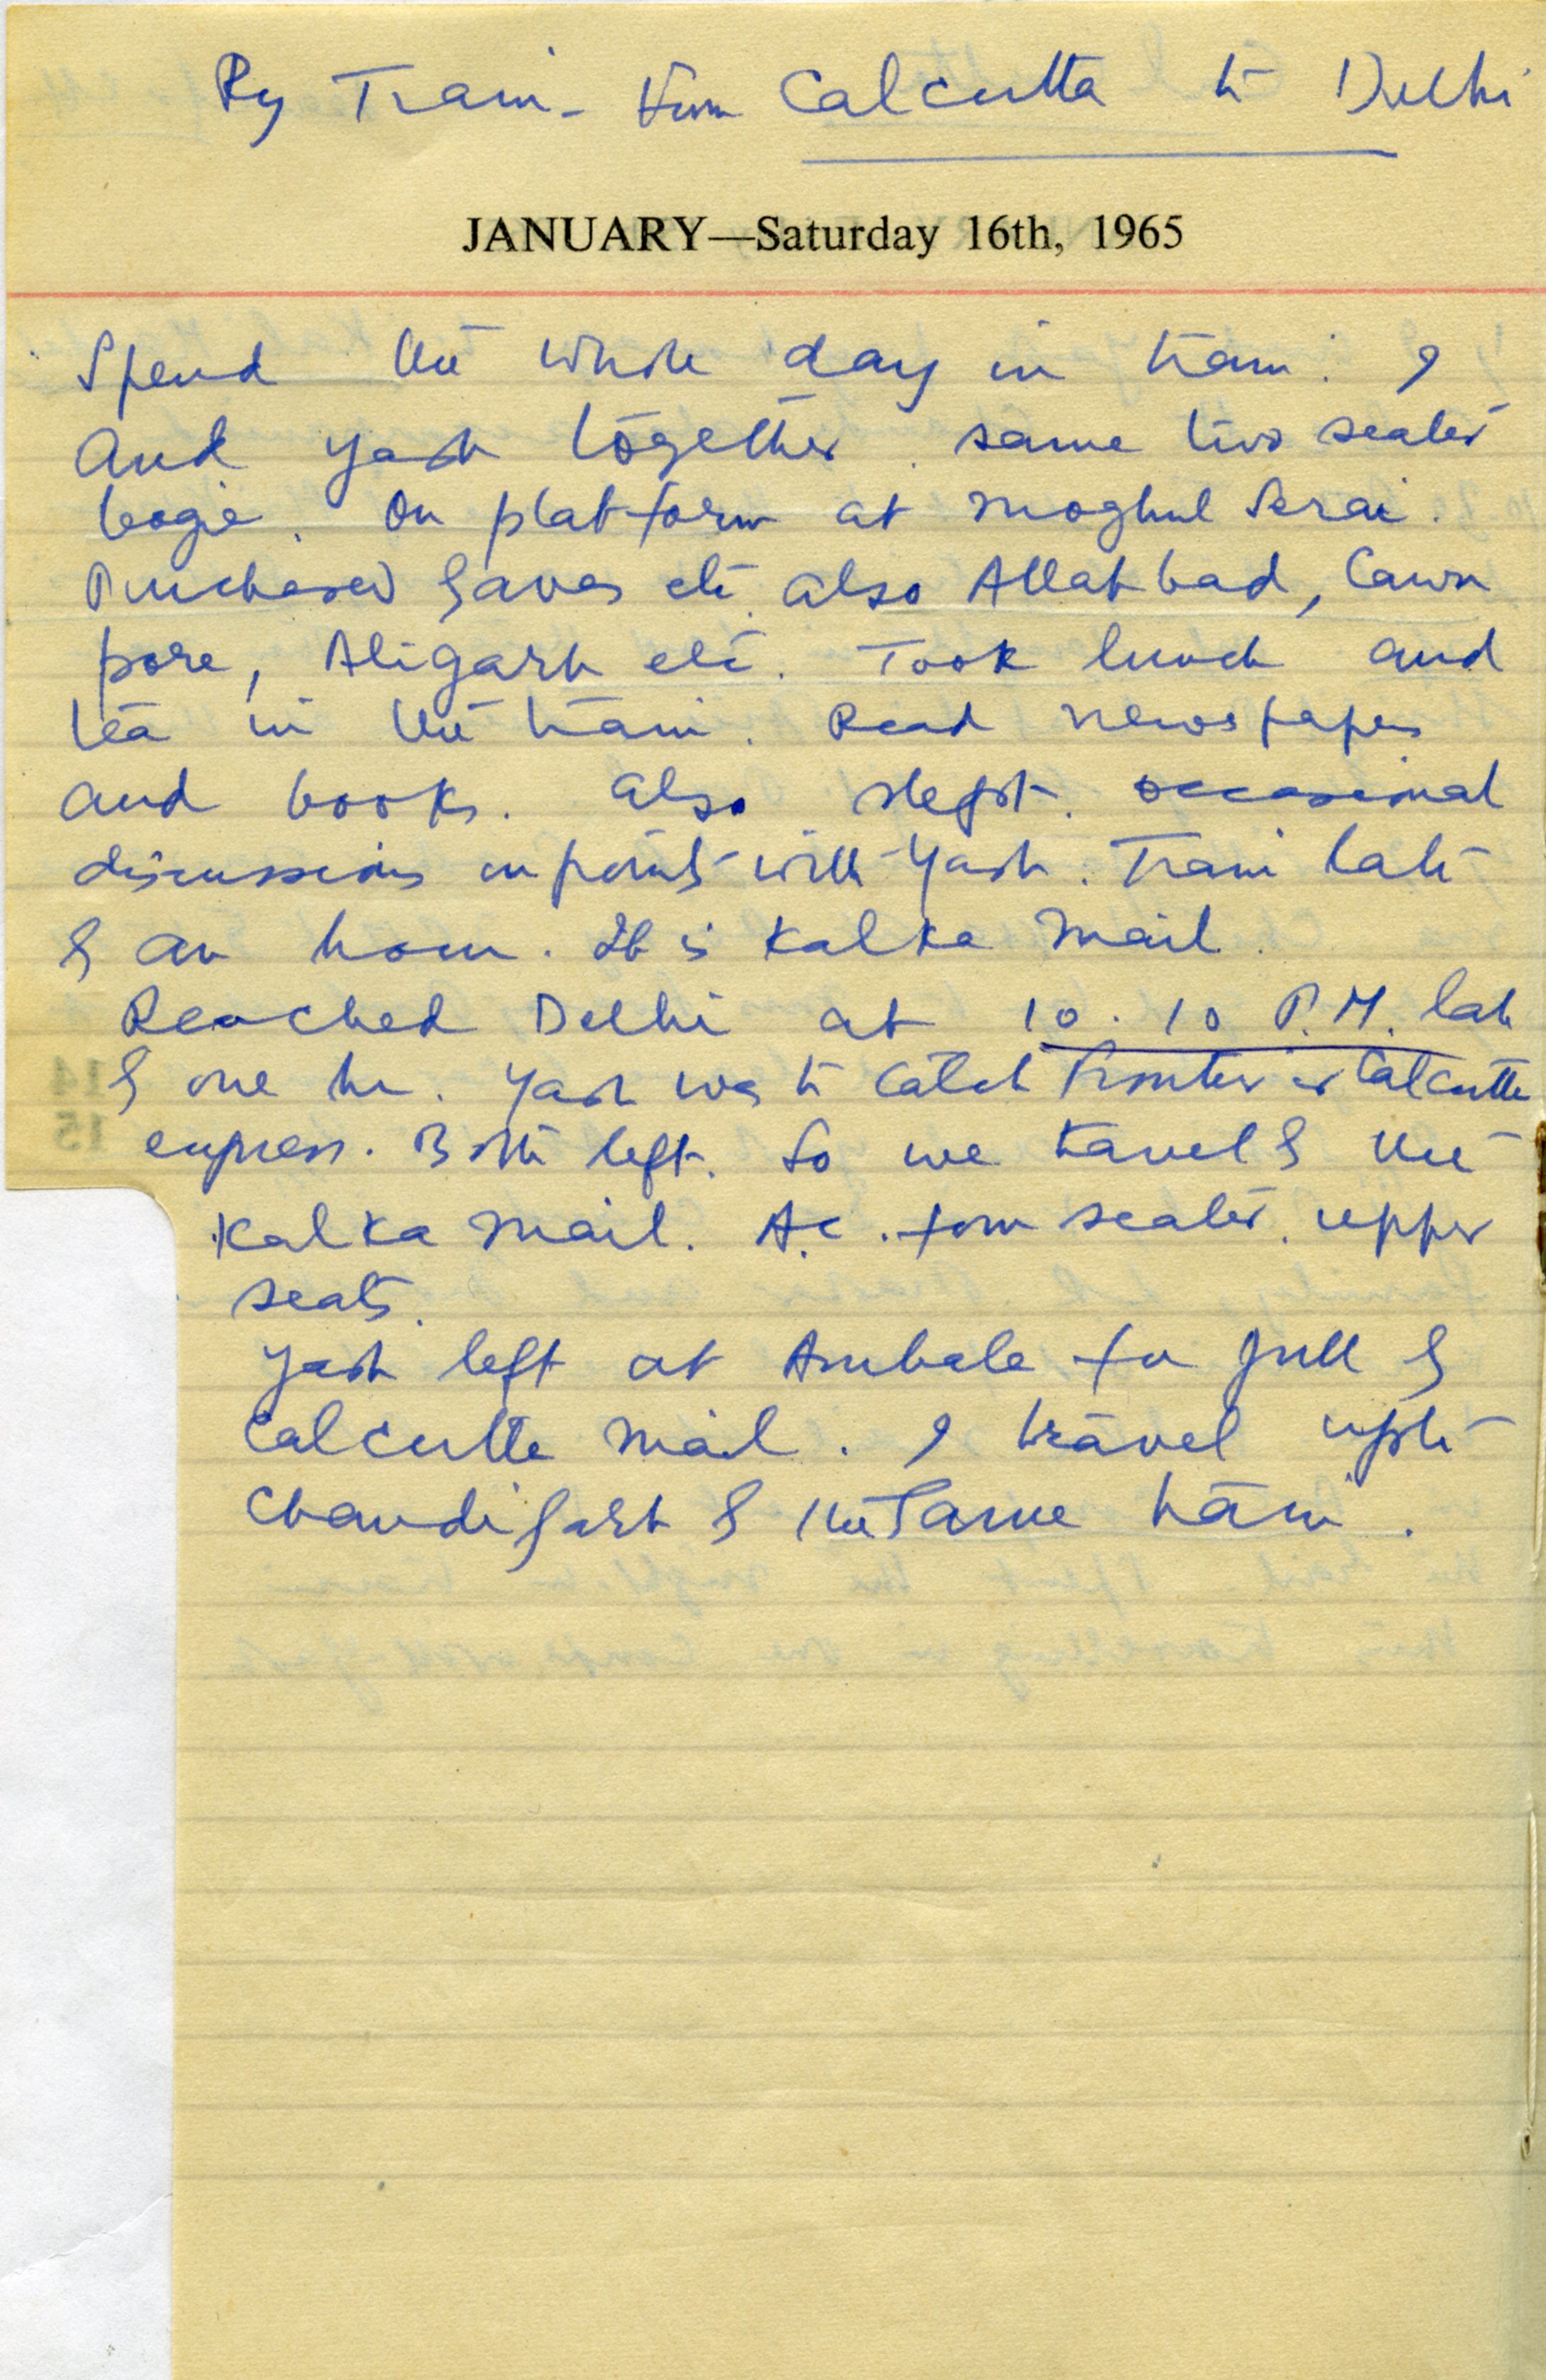 By Train - from Calcutta to Delhi
JANUARY—Saturday 16th, 1965
Spend the whole day in train. I
and Yash together. same two seater
bogie. On platform at Moghul Serai.
Purchased Gavas etc. also Allahbad, Cawn
pore, Aligarh etc. Took lunch and
tea in the train. Read newspapers
and books. Also slept. occasional
discussions on points with Yash. Train late
by an hour. It is Kalka Mail.
Reached Delhi at 10.10 P.M. late
by one hr. Yash was to catch Frontier or Calcutta
express. Both left. So we travel by the
Kalka Mail. A.C. four seater. upper
seats.
Yash left at Ambala for Jull by
Calcutta Mail. I travel upto
Chandigarh by the same train.